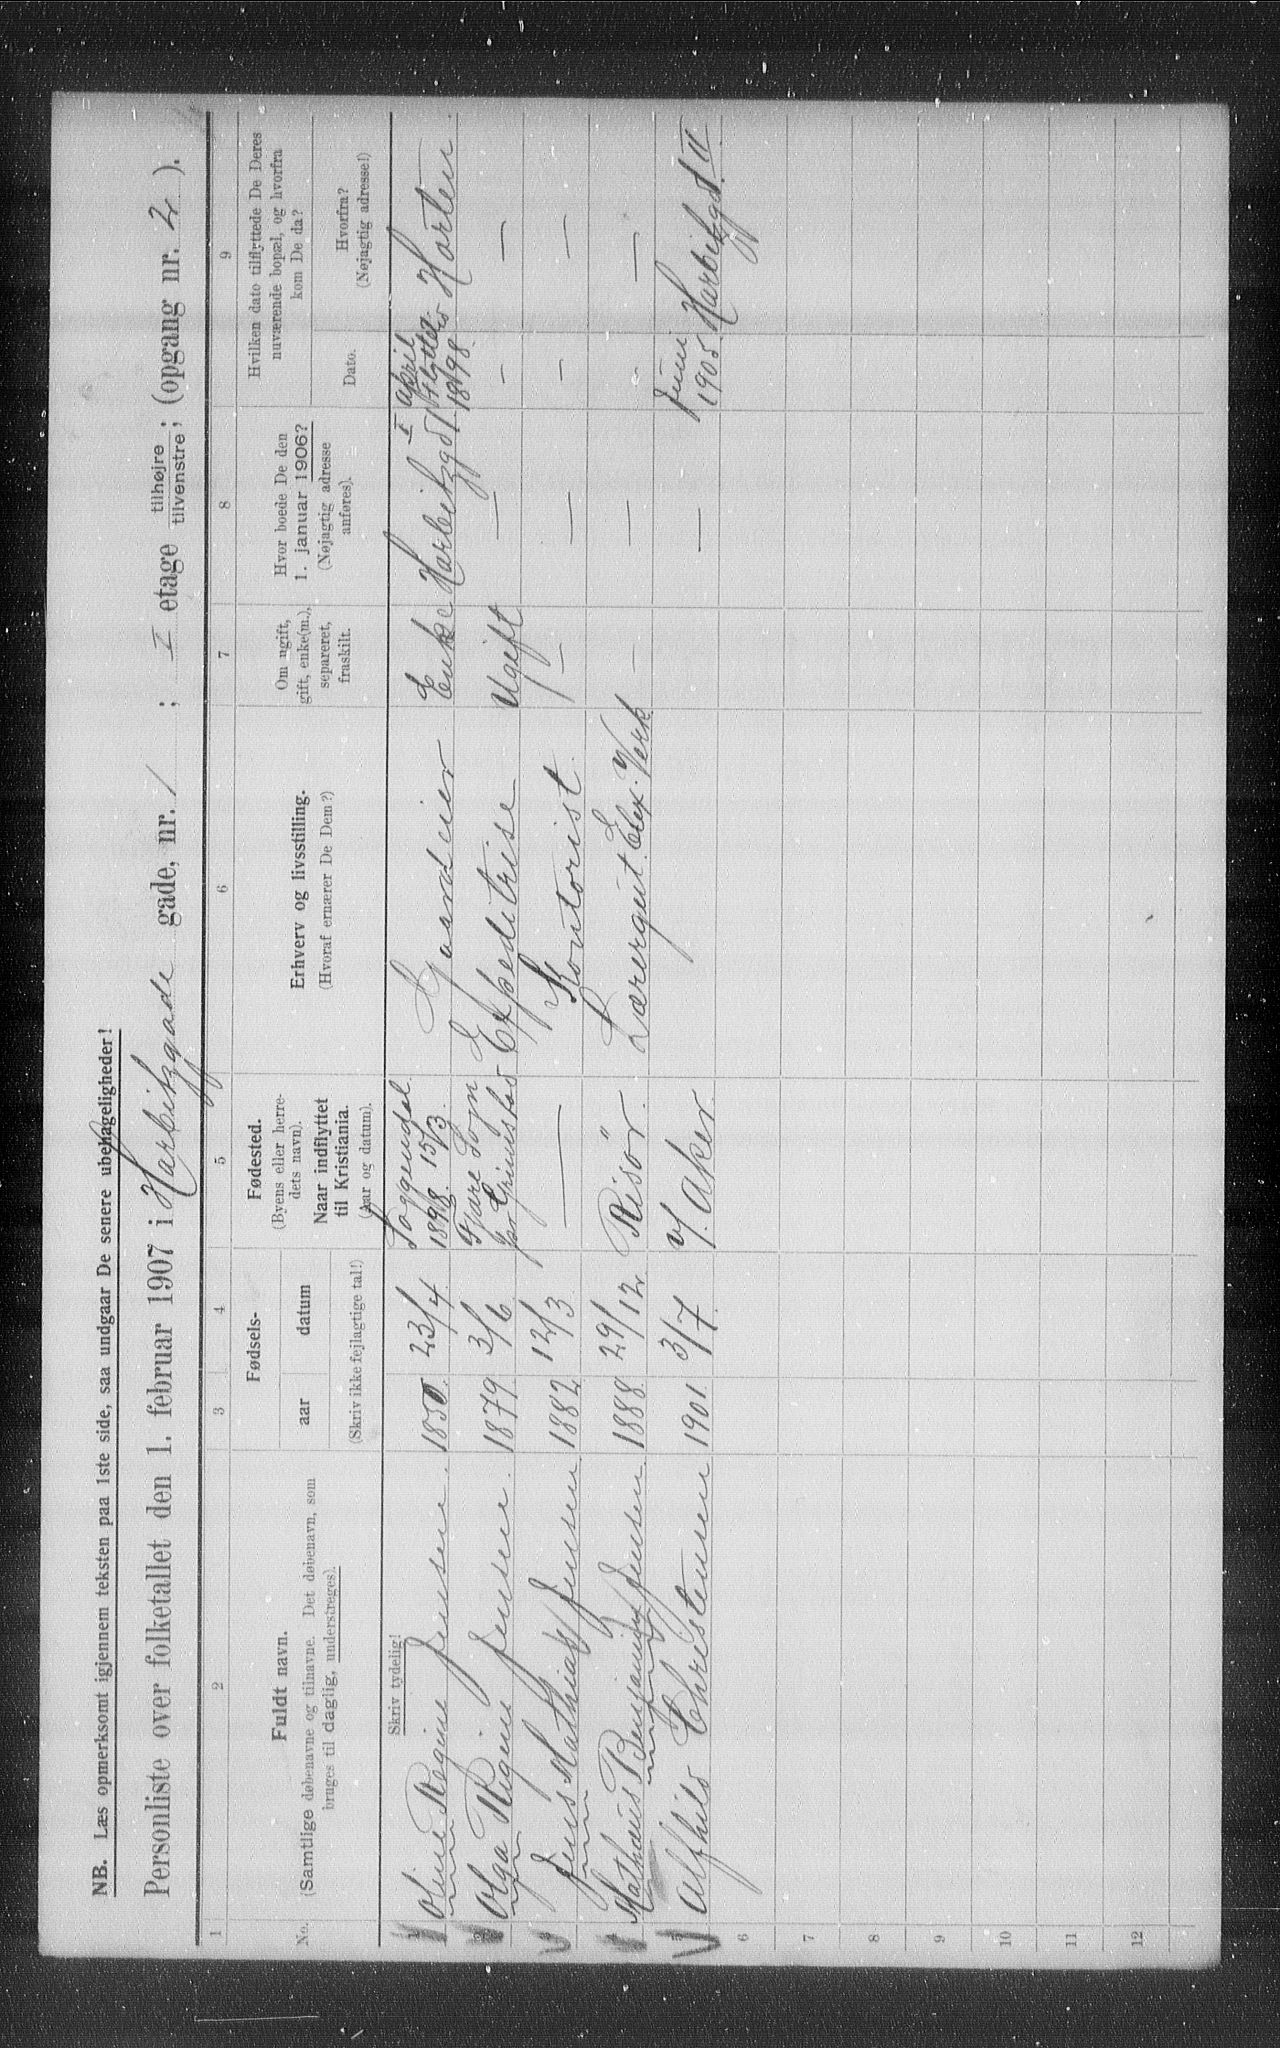 NB. Læs opmerksomt igjennem teksten paa 1ste side, saa undgaar De senere ubehageligheder!
Personliste over folketallet den 1. februar 1907 i Harbitzgade gade, nr. 1; I etage tilhøjre tilvenstre; (opgang nr. 2).
1 2 3 4 5 6 7 8 9
No.
Fuldt navn.
(Samtlige døbenavne og tilnavne. Det døbenavn, som
bruges til daglig, understreges).
Skriv tydelig!
Fødsels-
aar datum
(Skriv ikke fejlagtige tal!)
Fødested.
(Byens eller herre-
dets navn).
Naar indflyttet
til Kristiania.
(Aar og datum).
Erhverv og livsstilling.
(Hvoraf ernærer De Dem?)
Om ugift,
gift, enke(m.),
separeret,
fraskilt.
Hvor boede De den
1. januar 1906?
(Nøjagtig adresse
anføres).
Hvilken dato tilflyttede De Deres
nuværende bopæl, og hvorfra
kom De da?
Dato.
Hvorfra?
(Nøjagtig adresse!)
Oline Regine Jensen. 1850. 23/4 Soggendal. 1898. 15/3. Gaardeier Enke Harbitzgd 1. I April 1898. Horten
Olga Regine Jensen. 1879. 3/6 Fjære Sogn Grimstad Expeditrise Ugift — — —
Jens Mathias Jensen 1882 12/3 — Kontorist. — — — —
Mathæus Benjamin Jensen 1888 29/12. Risör. Lærergut. Elex. Verk. — — — —
Alfhild Christensen 1901 3/7. V. Aker. — Juni 1905. Harbitzgd. 1 II
6
7
8
9
10
11
12